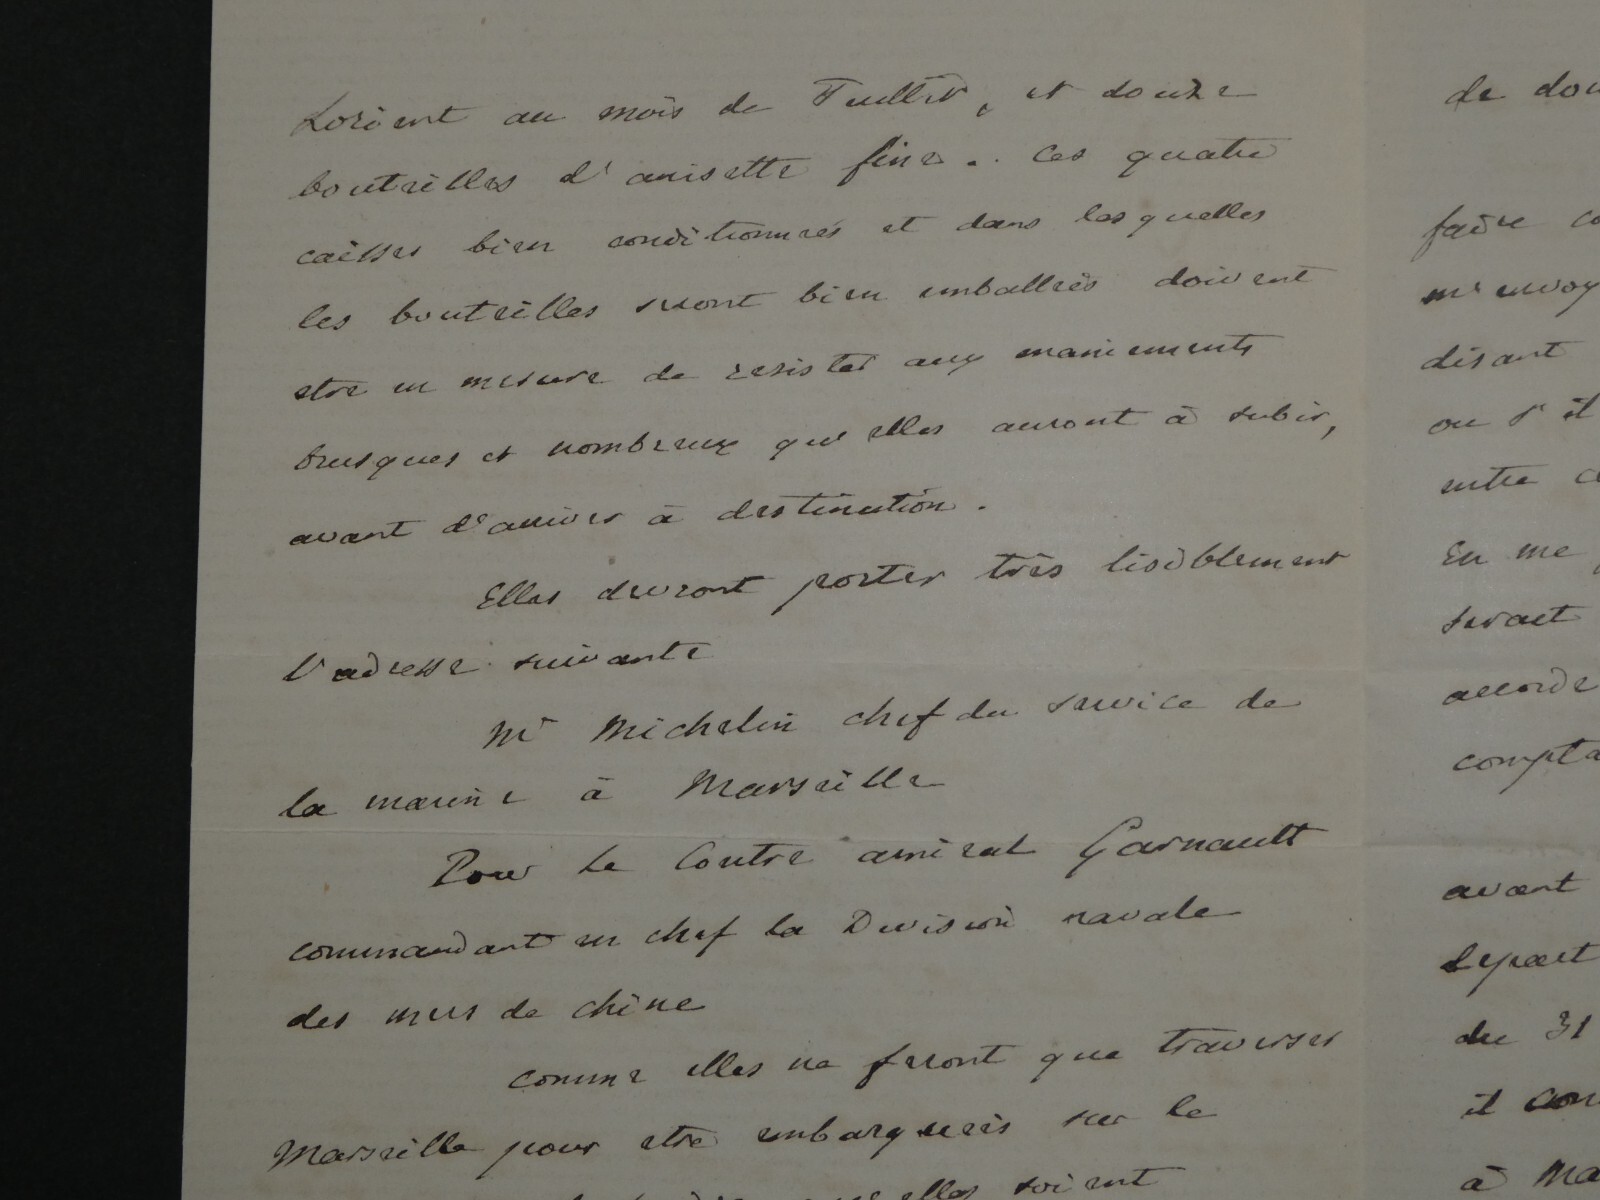 Lorient au mois de Juillet, et douze
bouteilles d'anisette fine.. Ces quatre
caisses bien conditionnées et dans lesquelles
les bouteilles seront bien emballées doivent
etre en mesure de resister aux maniements
brusques et nombreux que elles auront à subir,
avant d'arriver à destination.
Elles devront porter très lisiblement
l'adresse suivante
Mr Michelin chef du service de
la marine à Marseille
Pour le Contre amiral Garnault
commandant en chef la Division navale
des mers de Chine
comme elles ne feront que traverser
Marseille pour etre embarquées sur le
elles soient
de dou
faire co
m'envoy
disant
ou s'il
entre
En me
serait
accorde
compta
avant
depart
du 31
il con
à Ma